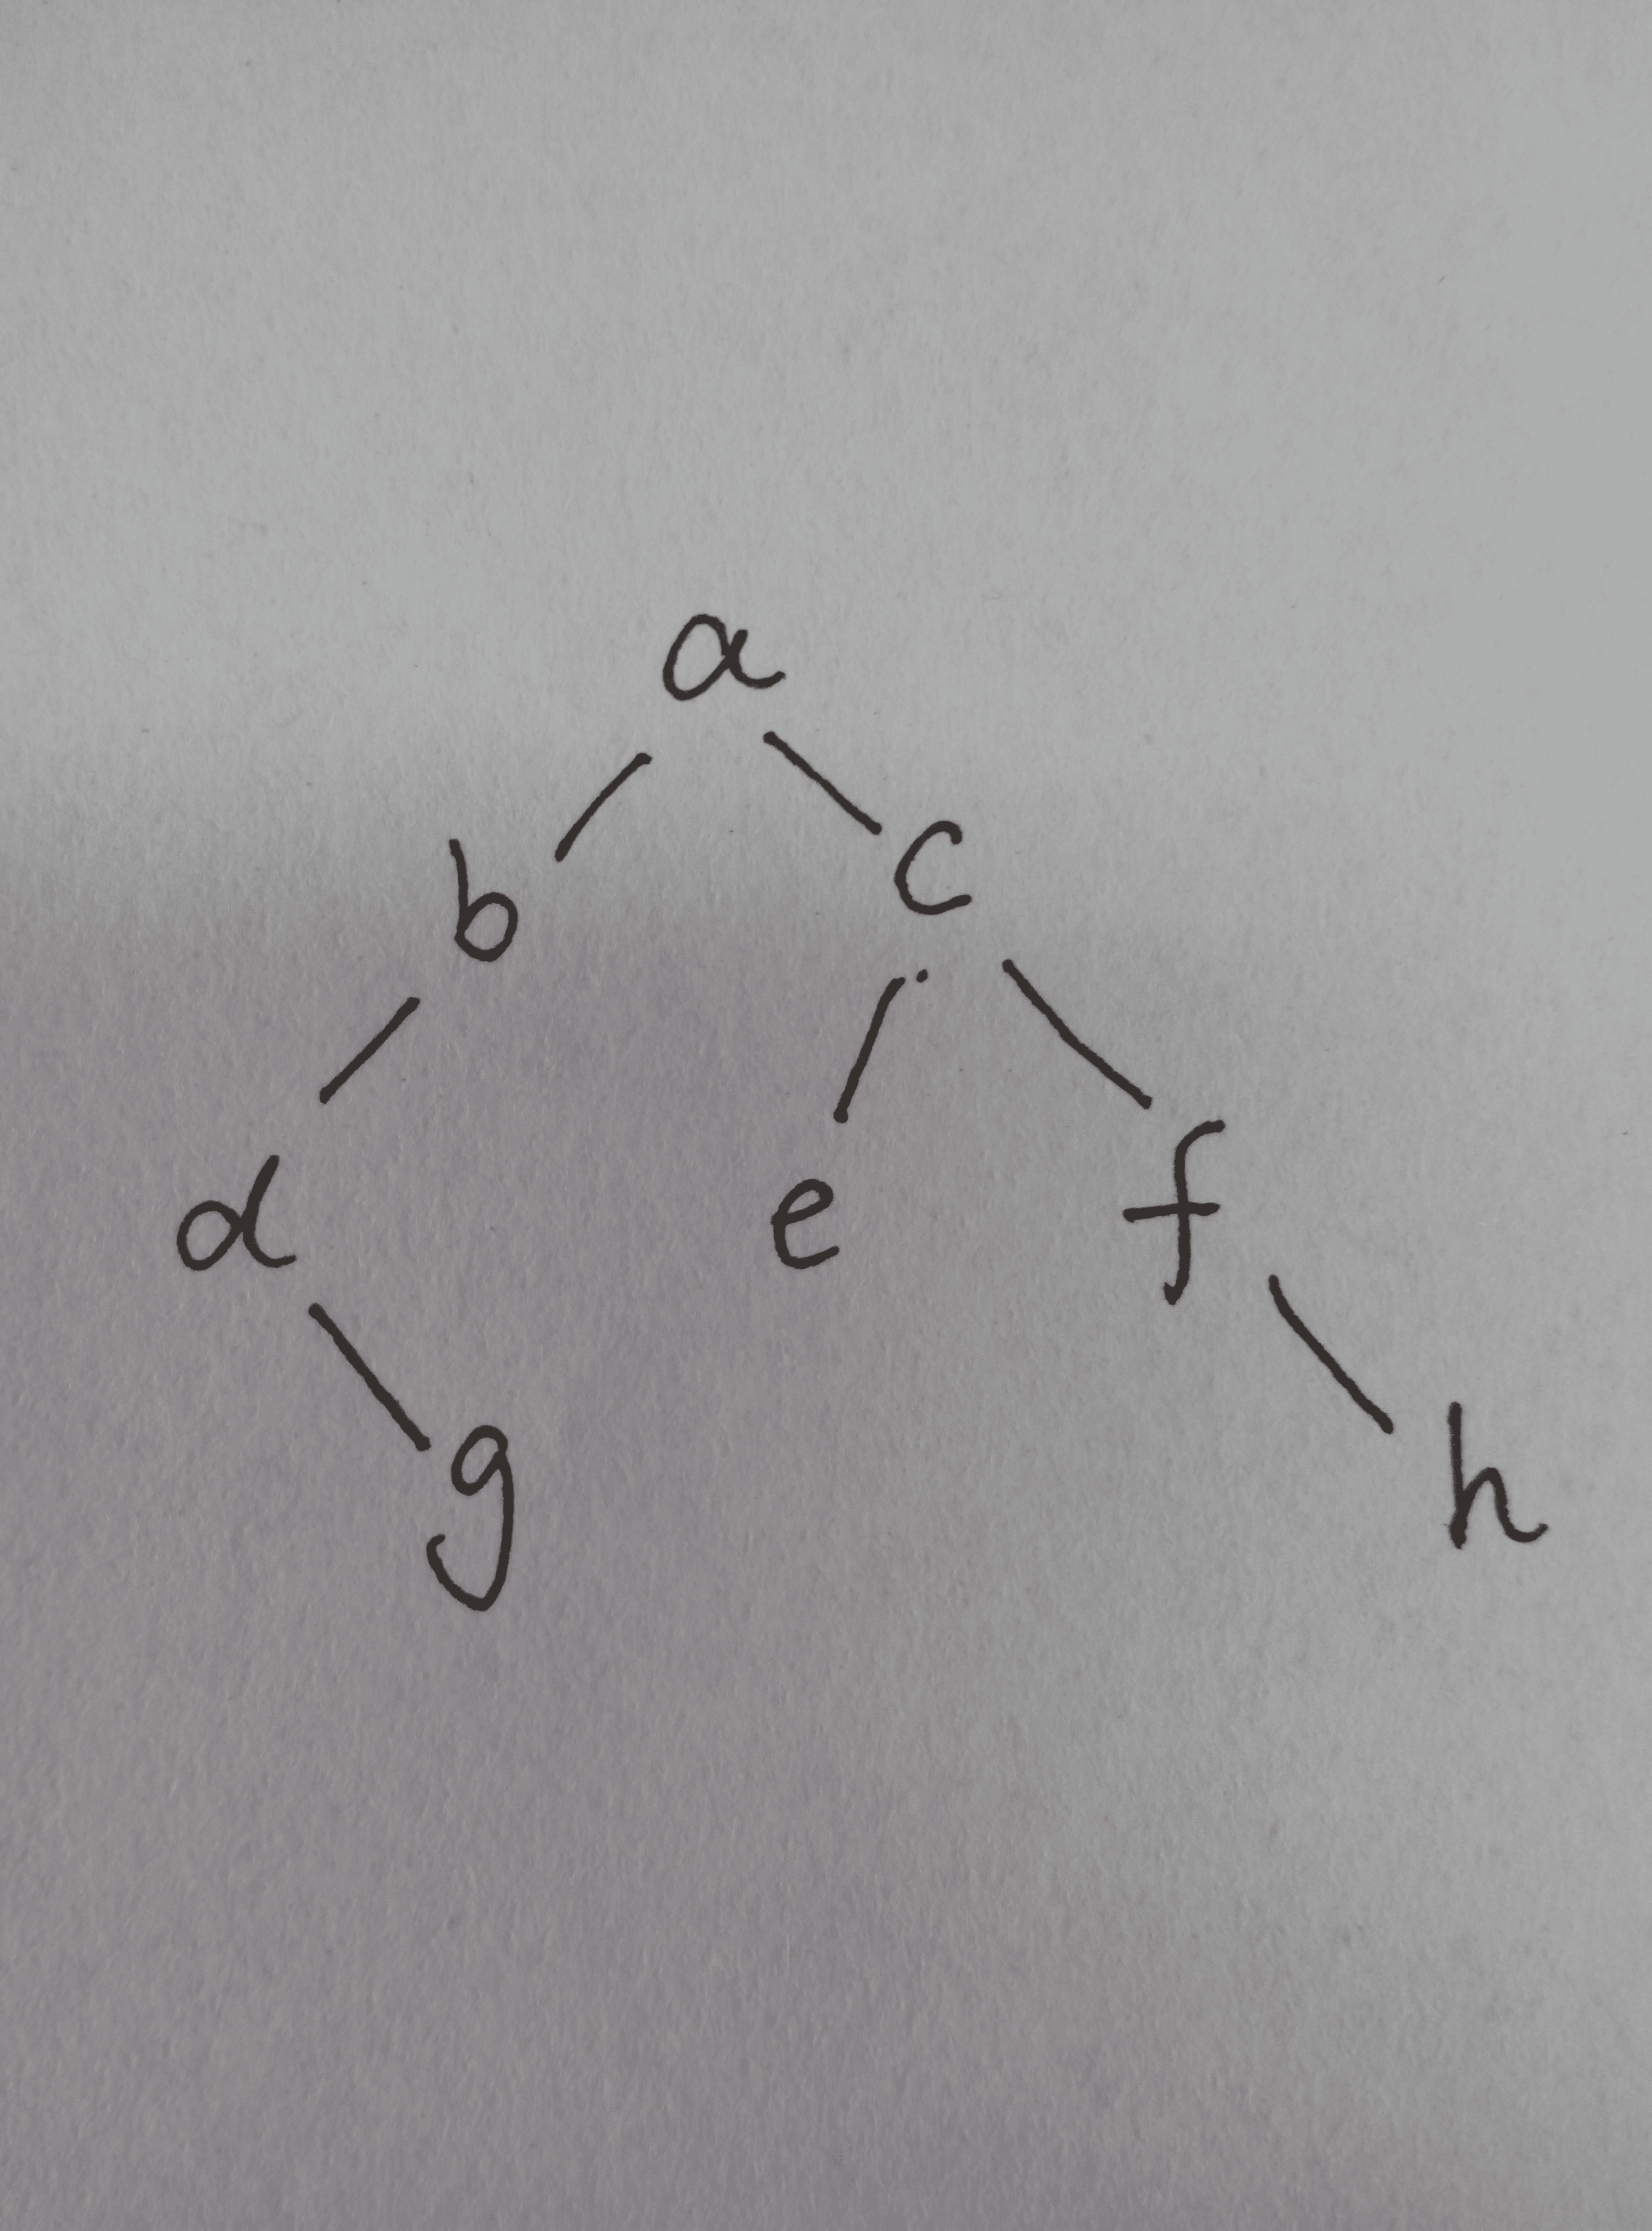 a
b c
d e f
g h